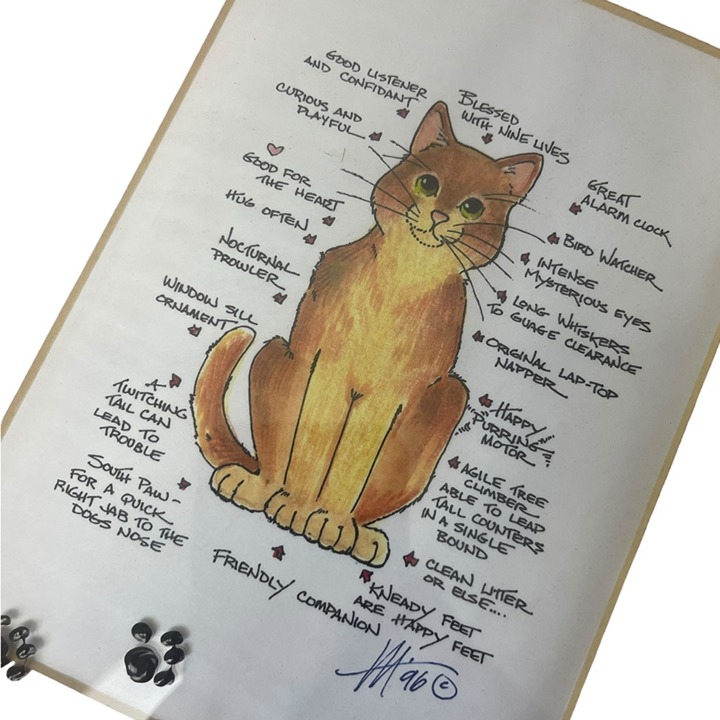 GOOD LISTENER
AND CONFIDANT
CURIOUS AND
PLAYFUL
GOOD FOR
THE HEART
HUG OFTEN
NOCTURNAL
PROWLER
WINDOW SILL
ORNAMENT
A
TWITCHING
TAIL CAN
LEAD TO
TROUBLE
SOUTH PAW -
FOR A QUICK
RIGHT JAB TO THE
DOGS NOSE
FRIENDLY COMPANION
BLESSED
WITH NINE LIVES
GREAT
ALARM CLOCK
BIRD WATCHER
INTENSE
MYSTERIOUS EYES
LONG WHISKERS
TO GUAGE CLEARANCE
ORIGINAL LAP-TOP
NAPPER
HAPPY
PURRING
MOTOR
AGILE TREE
CLIMBER
ABLE TO LEAP
TALL COUNTERS
IN A SINGLE
BOUND
CLEAN LITTER
OR ELSE....
KNEADY FEET
ARE HAPPY FEET
'96 ©